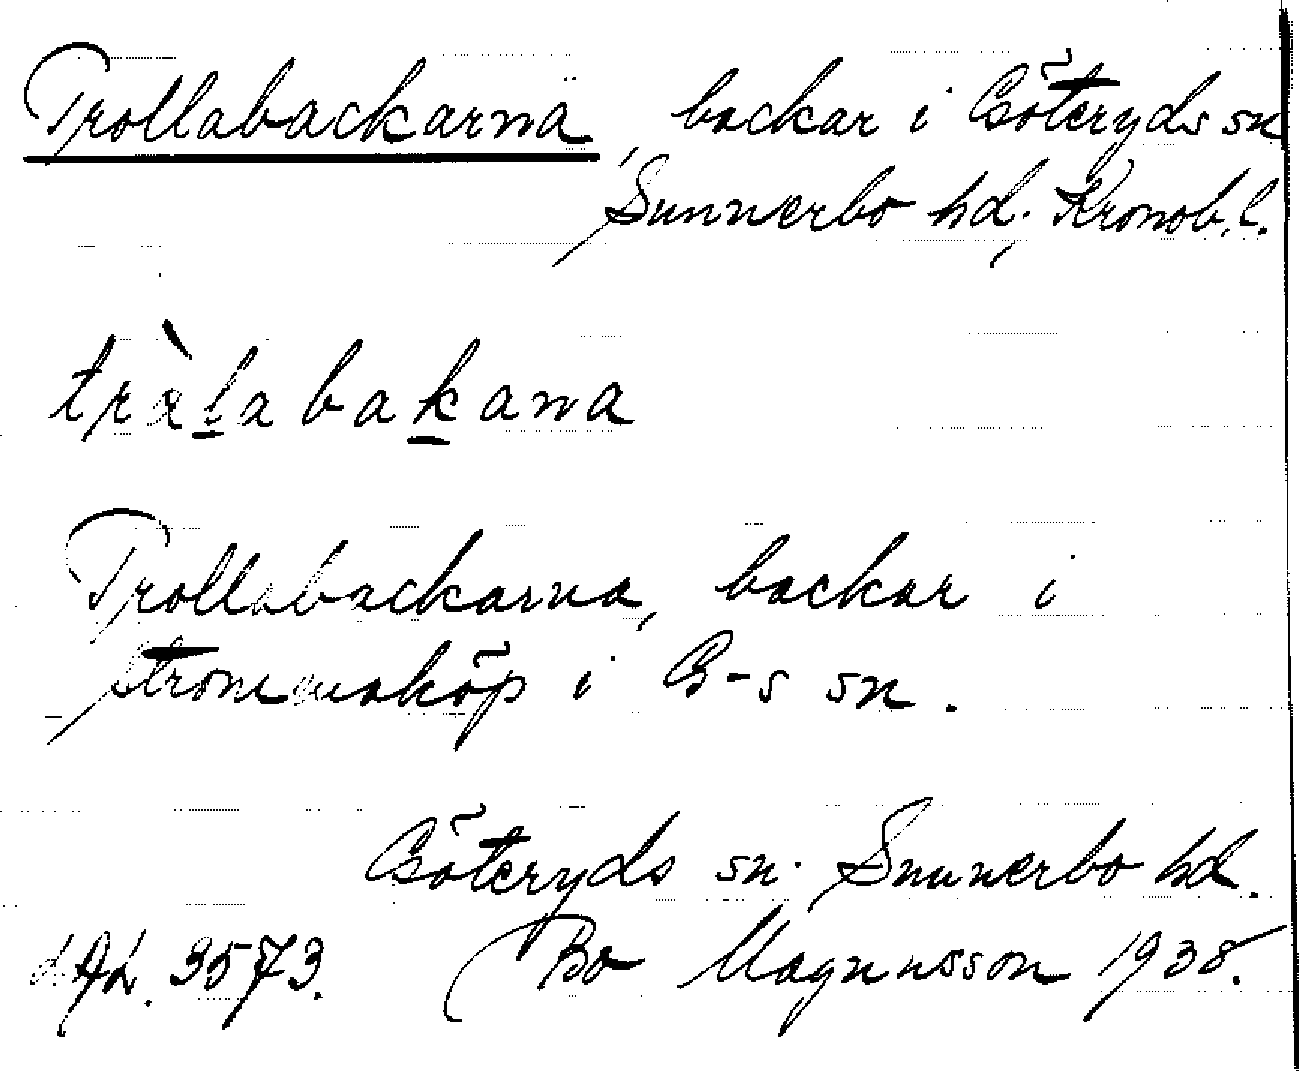 Trollabackarna, backar i Göteryds sn
Sunnerbo hd, Kronob. l.
tràlabakana
Trollabackarna, backar i
Strommaköp i G-s sn.
Göteryds sn. Sunnerbo hd.
3573. Bo Magnusson 1938.